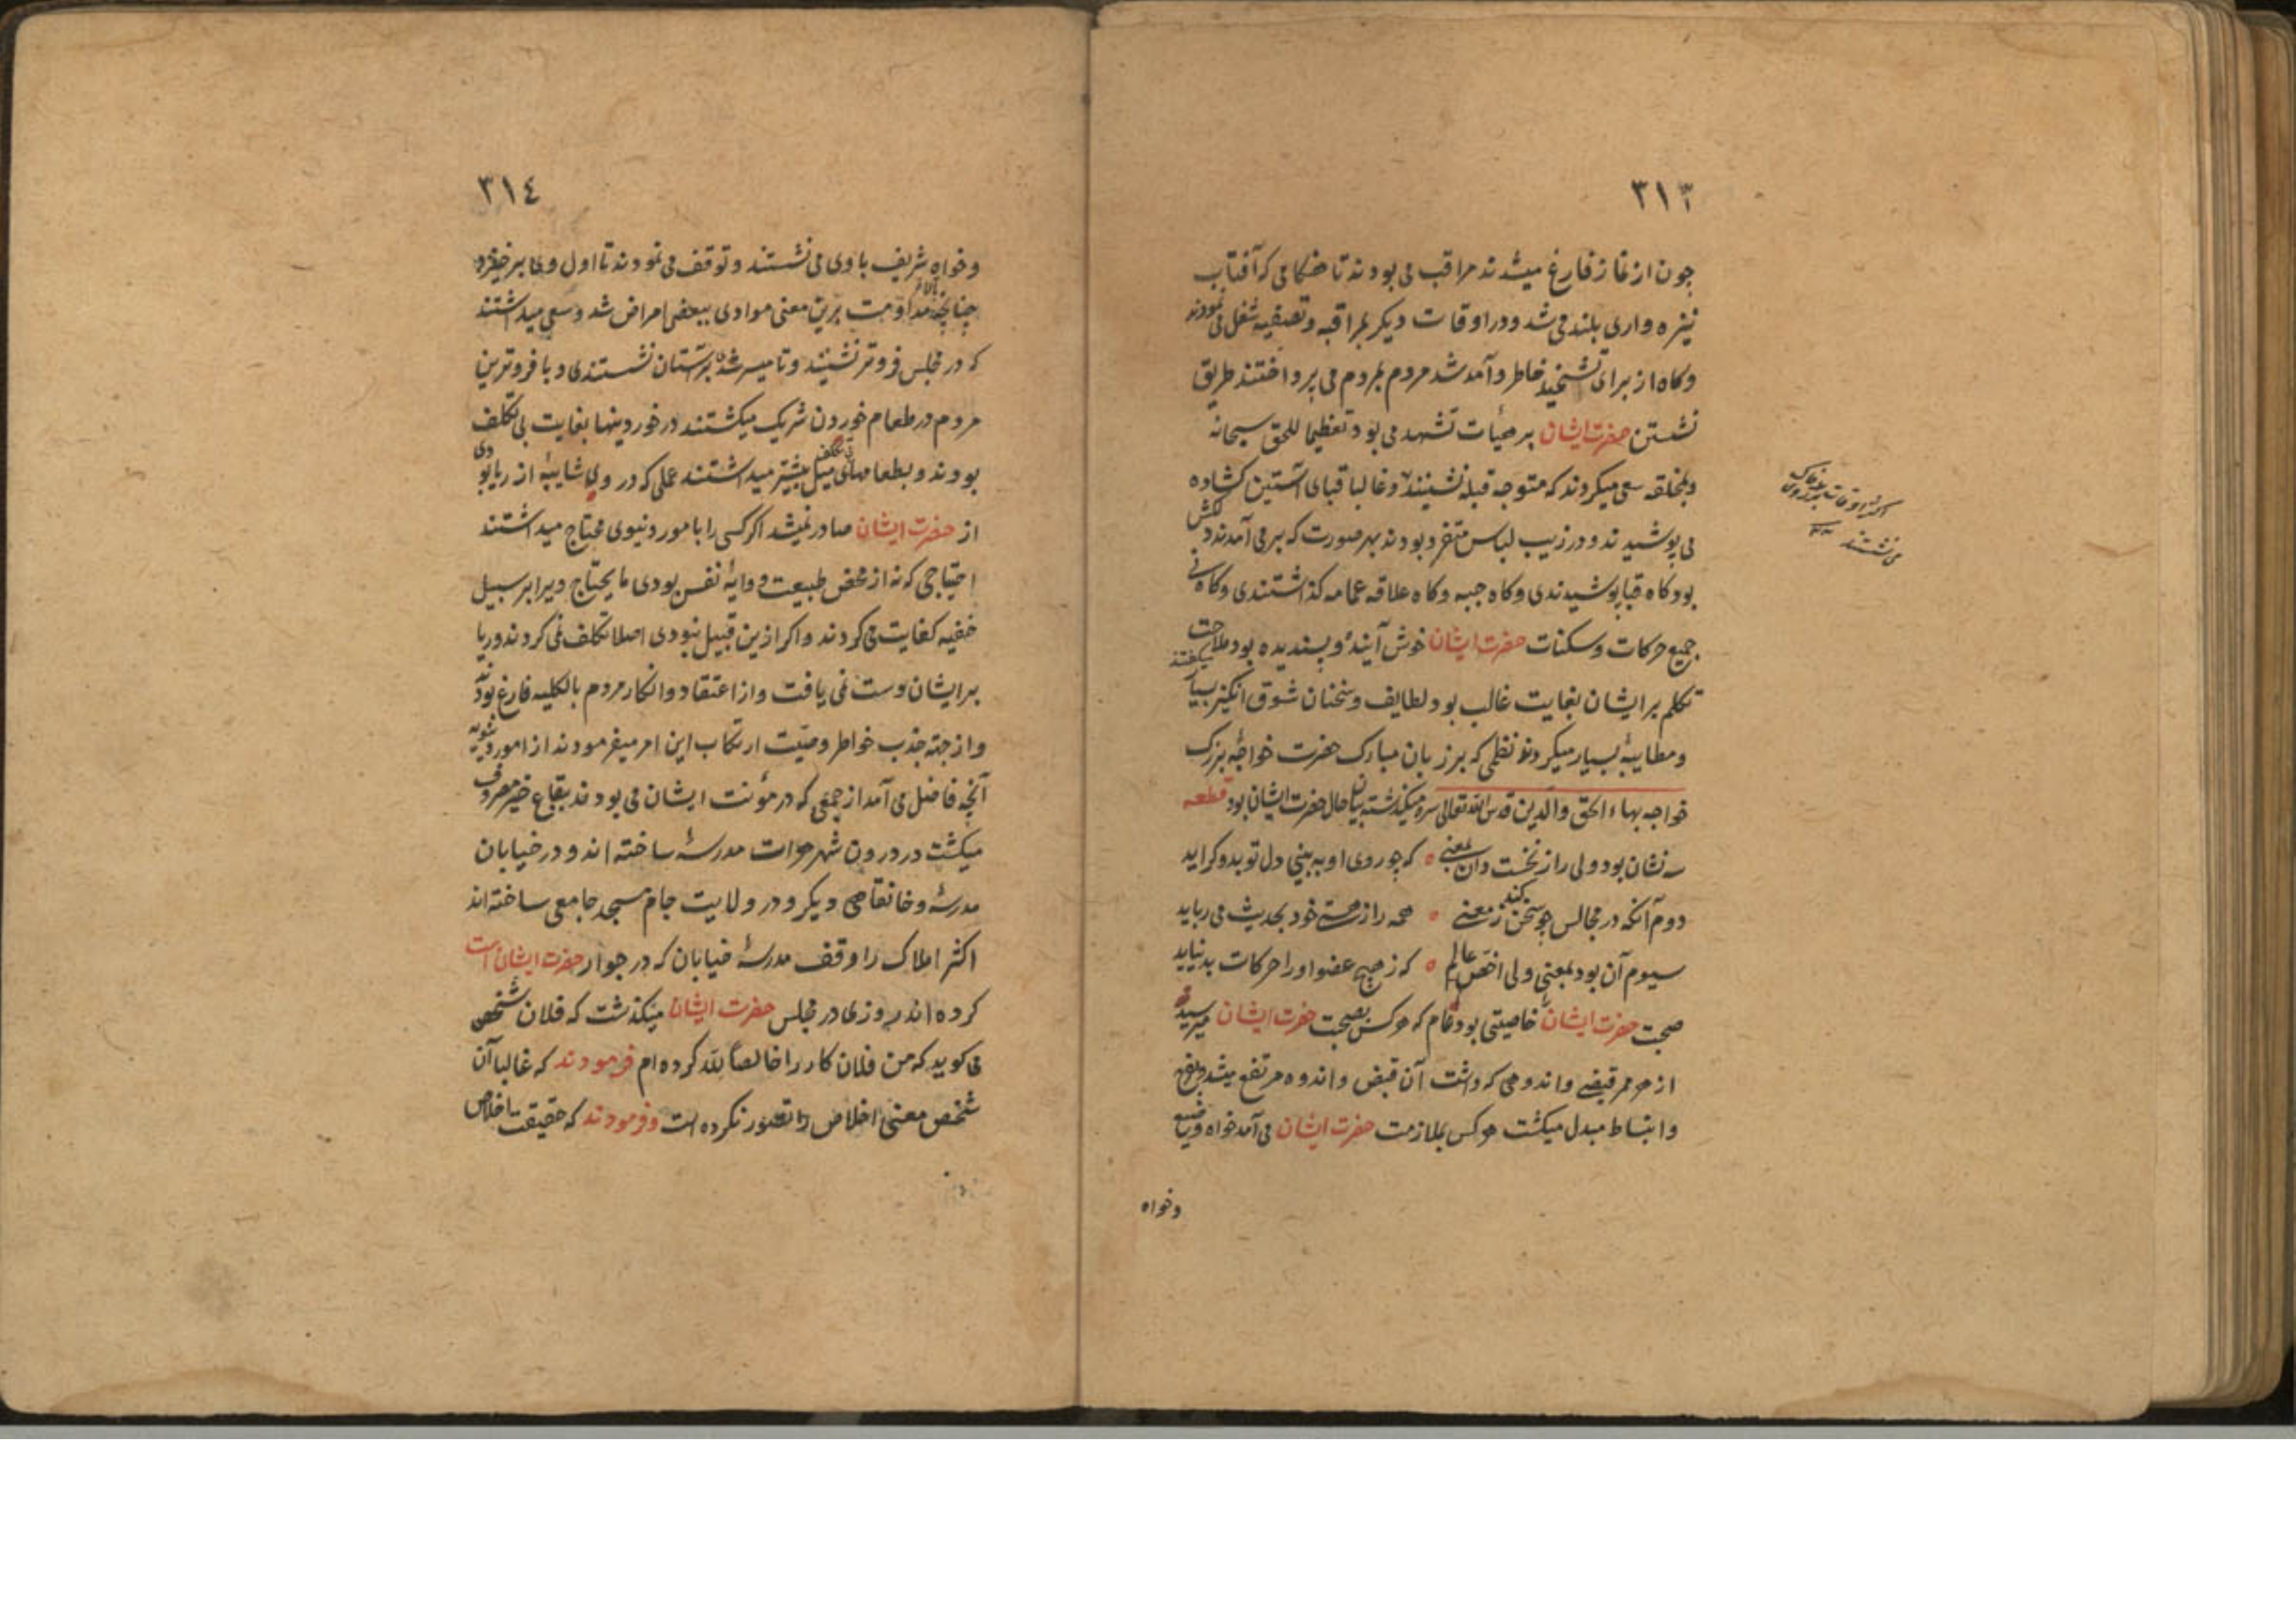 ٣١٣
چون از نماز فارغ میشدند مراقب می بودند تا هنکامی که آفتاب
نیزه واری بلند می شد و در اوقات دیکر بمراقبه و تصفیه شغل می نمودند
و کاه از برای تشحیذ خاطر و آمد شد مردم بمردم می پرداختند طریق
نشستن حضرت ایشان بر هیأت تشهد می بود تعظیما للحق سبحانه
و بخلقه سعی میکردند که متوجه قبله نشینند و غالبا قبای آستین کشاده
اکثر اوقات بر روی خاک
می نشستند
می پوشیدند و در زیب لباس متفرد بودند بهر صورت که برمی آمدند دلکش
بود کاه قبا پوشیدندی و کاه جبه و کاه علاقه عمامه کذاشتندی و کاه نی
جمیع حرکات و سکنات حضرت ایشان خوش آینده و پسندیده بود ملاحت
تکلم بر ایشان بغایت غالب بود لطایف و سخنان شوق انکیز بسیار میکفتند
و مطایبه بسیار میکردند و نظمی که بر زبان مبارک حضرت خواجه بزرک
خواجه بهاء الحق والدین قدس الله تعالی سره میکذشته بیان حال حضرت ایشان بود قطعه
سه نشان بود ولی را ز نخست دان بمعنی که چو روی او به بینی دل تو بدو کراید
دوم آنکه در مجالس چو سخن کند ز معنی همه را ز هستی خود بحدیث می رباید
سیوم آن بود بمعنی ولی اخص عالم که ز هیچ عضو او را حرکات بد نیاید
صحبت حضرت ایشان را خاصیتی بود عام که هر کس بصحبت حضرت ایشان میرسید
از هر ممر قبضی و اندوهی که داشت آن قبض و اندوه مرتفع میشد و بفرح
و انبساط مبدل میکشت هر کس بملازمت حضرت ایشان می آمد خواه وضیع
وخواه
٣١٤
و خواه شریف با وی می نشستند و توقف می نمودند تا اول وی برخیزد
چنانچه مداومت برین معنی موادی ببعضی امراض شد و سعی میداشتند
که در مجلس فروتر نشینند و تا میسر شدی بر آستان نشستندی و با فروترین
مردم در طعام خوردن شریک میکشتند در خوردنیها بغایت بی تکلف
بودند و بطعامهای بی تکلف میل بیشتر میداشتند عملی که در وی شایبه از ریا بودی
از حضرت ایشان صادر نمیشد اکر کسی را بامور دنیوی محتاج میداشتند
احتیاجی که نه از محض طبیعت و وایه نفس بودی ما یحتاج ویرا بر سبیل
خفیه کفایت می کردند و اکر ازین قبیل نبودی اصلا تکلف نمی کردند و ریا
بر ایشان دست نمی یافت و از اعتقاد و انکار مردم بالکلیه فارغ بودند
و از جهة جذب خواطر وصیت ارتکاب این امر میفرمودند از امور دنیویه
آنچه فاضل می آمد از جمعی که در مؤنت ایشان می بودند ببقاع خیر مصروف
میکشت در درون شهر هرات مدرسه ساخته اند و در خیابان
مدرسه و خانقاهی دیکر و در ولایت جام مسجد جامعی ساخته اند
اکثر املاک را وقف مدرسه خیابان که در جوار حضرت ایشان است
کرده اند روزی در مجلس حضرت ایشان میکذشت که فلان شخص
می کوید که من فلان کار را خالصا لله کرده ام فرمودند که غالبا آن
شخص معنی اخلاص را تصور نکرده است و فرمودند که حقیقت اخلاص